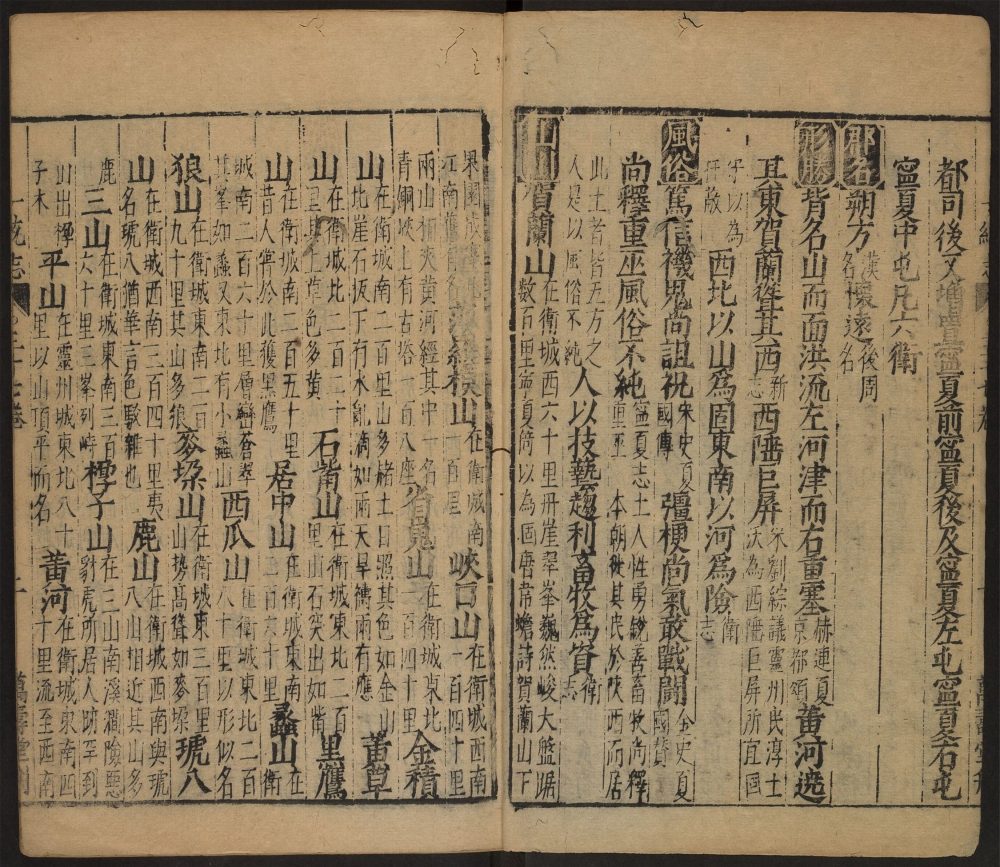 都司後又增置寧夏前寧夏後及寧夏左屯寧夏右屯
寧夏中屯凡六衛
郡名朔方漢名懷遠後周名
形勝皆名山而面洪流左河津而右重塞赫連夏京都頌黃河遶
其東賀蘭聳其西新志西陲巨屏宋劉綜議靈州民淳土沃為西陲巨屏所宜固
守以為扞敝西北以山為固東南以河為險衛志
風俗篤信禨鬼尚詛祝宋史夏國傳彊梗尚氣敢戰鬪金史夏國贊
尚釋重巫風俗不純寧夏志土人性勇銳善畜牧尚釋重巫本朝徙其民於陝西而居
此土者皆五方之人是以風俗不純人以技藝趨利畜牧為習衛志
山川賀蘭山在衛城西六十里丹崖翠峯巍然峻大盤踞數百里寧夏倚以為固唐韋蟾詩賀蘭山下
果園成
江南舊
山在衛城南一百里峽口山在衛城西南一百四十里
兩山相夾黃河經其中一名青銅峽上有古塔一百八座省嵬山在衛城東北一百四十里金積
山在衛城南二百里山多赭土日照其色如金山北崖石坂下有水亂滴如雨天旱禱雨有應黃草
山在衛城北二百二十里其上草色多黃石觜山在衛城東北二百里山石突出如觜黑鷹
山在衛城南二百五十里昔人嘗於此獲黑鷹居中山在衛城東南二百六十里蠡山在衛
城南二百六十里層巒蒼翠其峯如蠡又北有小蠡山西瓜山在衛城東北二百八十里以形似名
狼山在衛城東南二百九十里其山多狼麥垜山在衛城東三百里山勢高聳如麥垜琥八
山在衛城西南三百四十里夷名琥八猶華言色駁雜也鹿山在衛城西南與琥八山相近其山多
鹿三山在衛城東南三百六十里三峯列峙樗子山在三山南溪㵎險惡豺虎所居人跡罕到
山出樗子木平山在靈州城東北八十里以山頂平而名黃河在衛城東南四十里流至西南
一統志
三十七卷
二十
萬壽堂刊